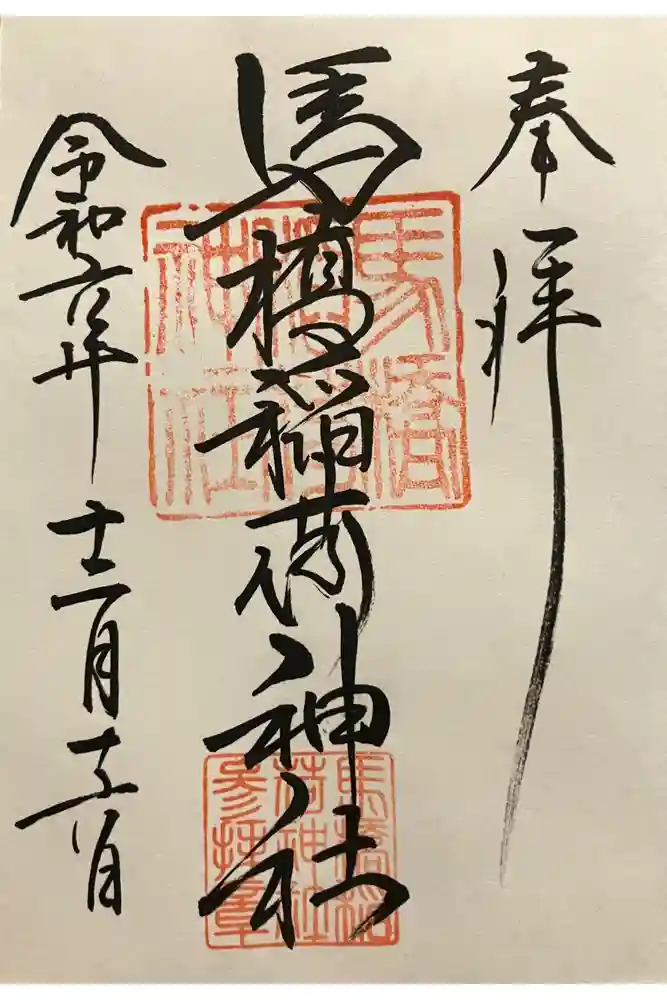 奉拝
馬橋稲荷神社
令和六年 十二月十日
馬橋
稲荷
神社
馬橋稲
荷神社
参拝章